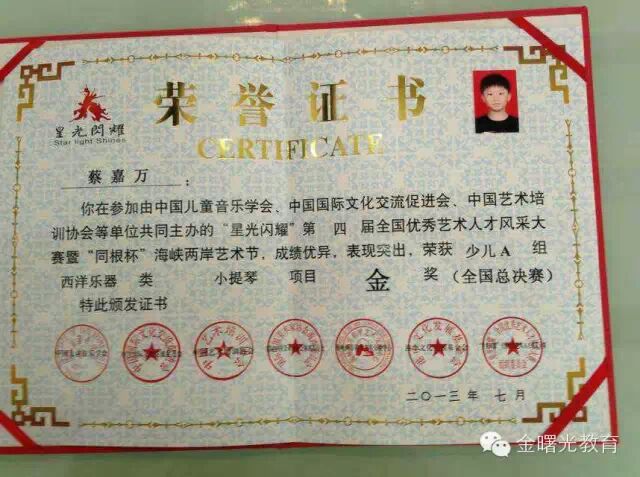 星光閃耀
Star light Shines
荣誉证书
CERTIFICATE
蔡嘉万：
你在参加由中国儿童音乐学会、中国国际文化交流促进会、中国艺术培
训协会等单位共同主办的“星光闪耀”第 四 届全国优秀艺术人才风采大
赛暨“同根杯”海峡两岸艺术节，成绩优异，表现突出，荣获 少儿A 组
西洋乐器 类 小提琴 项目 金 奖（全国总决赛）
特此颁发证书
二〇一三年 七月
金曙光教育